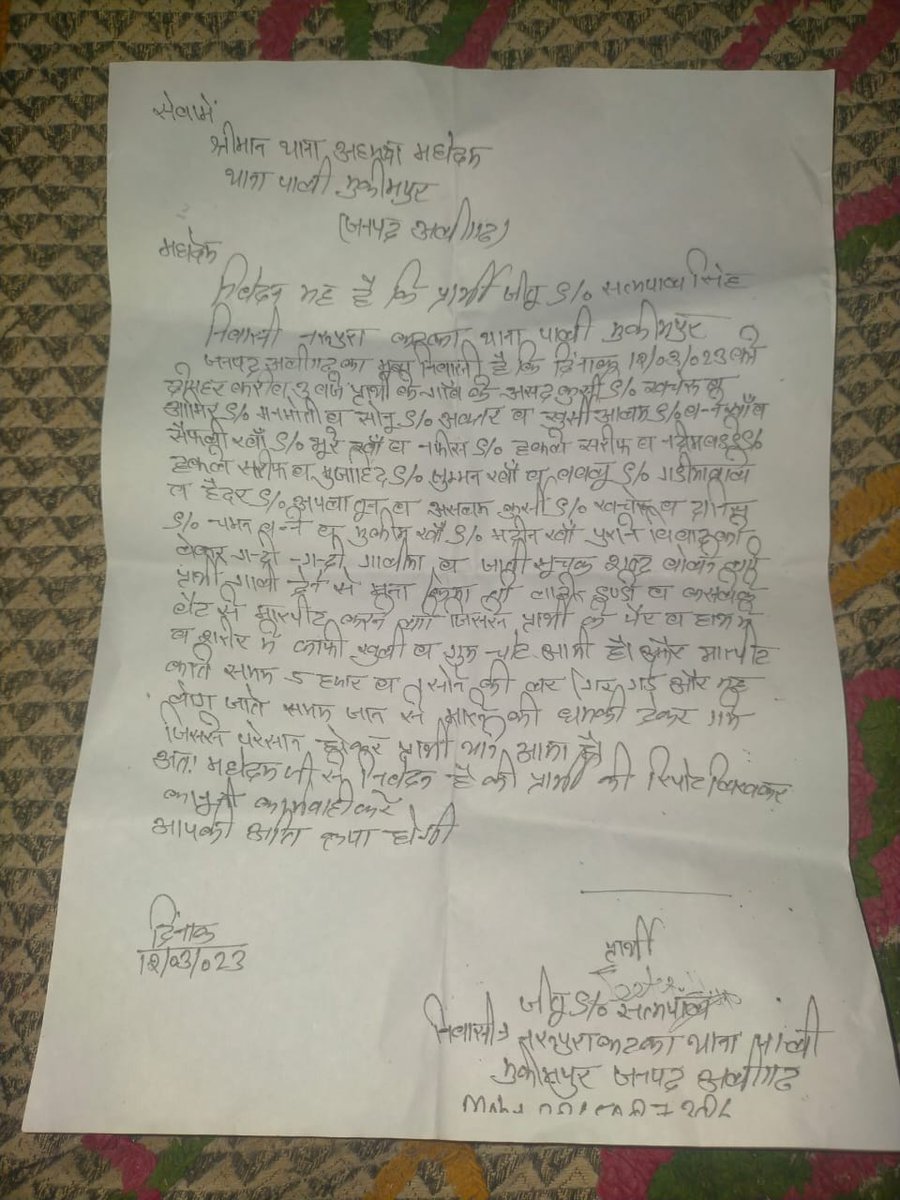 सेवामें
श्रीमान थाना अध्यक्ष महोदय
थाना पाली मुकीमपुर
(जनपद अलीगढ)
महोदय
निवेदन यह है कि प्रार्थी जीतू S/o सत्यपाल सिंह
निवासी थाना पाली मुकीमपुर
जनपद अलीगढ का मूल निवासी है कि दिनांक 12/03/023 को
दोपहर करीब 3 बजे प्रार्थी के गांव के असद कुर्सी S/o व
आमिर S/o व सोनू S/o व S/o व
सैफली खाँ S/o भूरे खाँ व नफीस S/o हकले सरीफ व S/o
हकले सरीफ व मुजाहिद S/o सुम्मन खाँ व बबलू S/o
व हैदर S/o व असलम कुर्सी S/o व
S/o चमन व मुकीम खाँ S/o खाँ पुराने विवाद को
लेकर गन्दी गन्दी गालीया व जाती सूचक शब्द बोलने लगे
प्रार्थी गाली देने से मना किया तो लाठी डण्डो व
बैट से मारपीट करने लगे जिससे प्रार्थी के पैर व हाथ में
व शरीर में काफी खुली व गुम चोट आयी है। और मारपीट
करते समय 5 हजार व सोने की लर गिर गई और यह
लोग जाते समय जान से मारने की धमकी देकर गये
जिससे परेसान होकर प्रार्थी थाने आया है।
अतः महोदय जी से निवेदन है की प्रार्थी की रिपोट लिखकर
कानूनी कार्यवाही करे
आपकी अति कृपा होगी
दिंनाक
12/03/023
प्रार्थी
जीतू S/o सत्यपाल
निवासी थाना पाली
मुकीमपुर जनपद अलीगढ